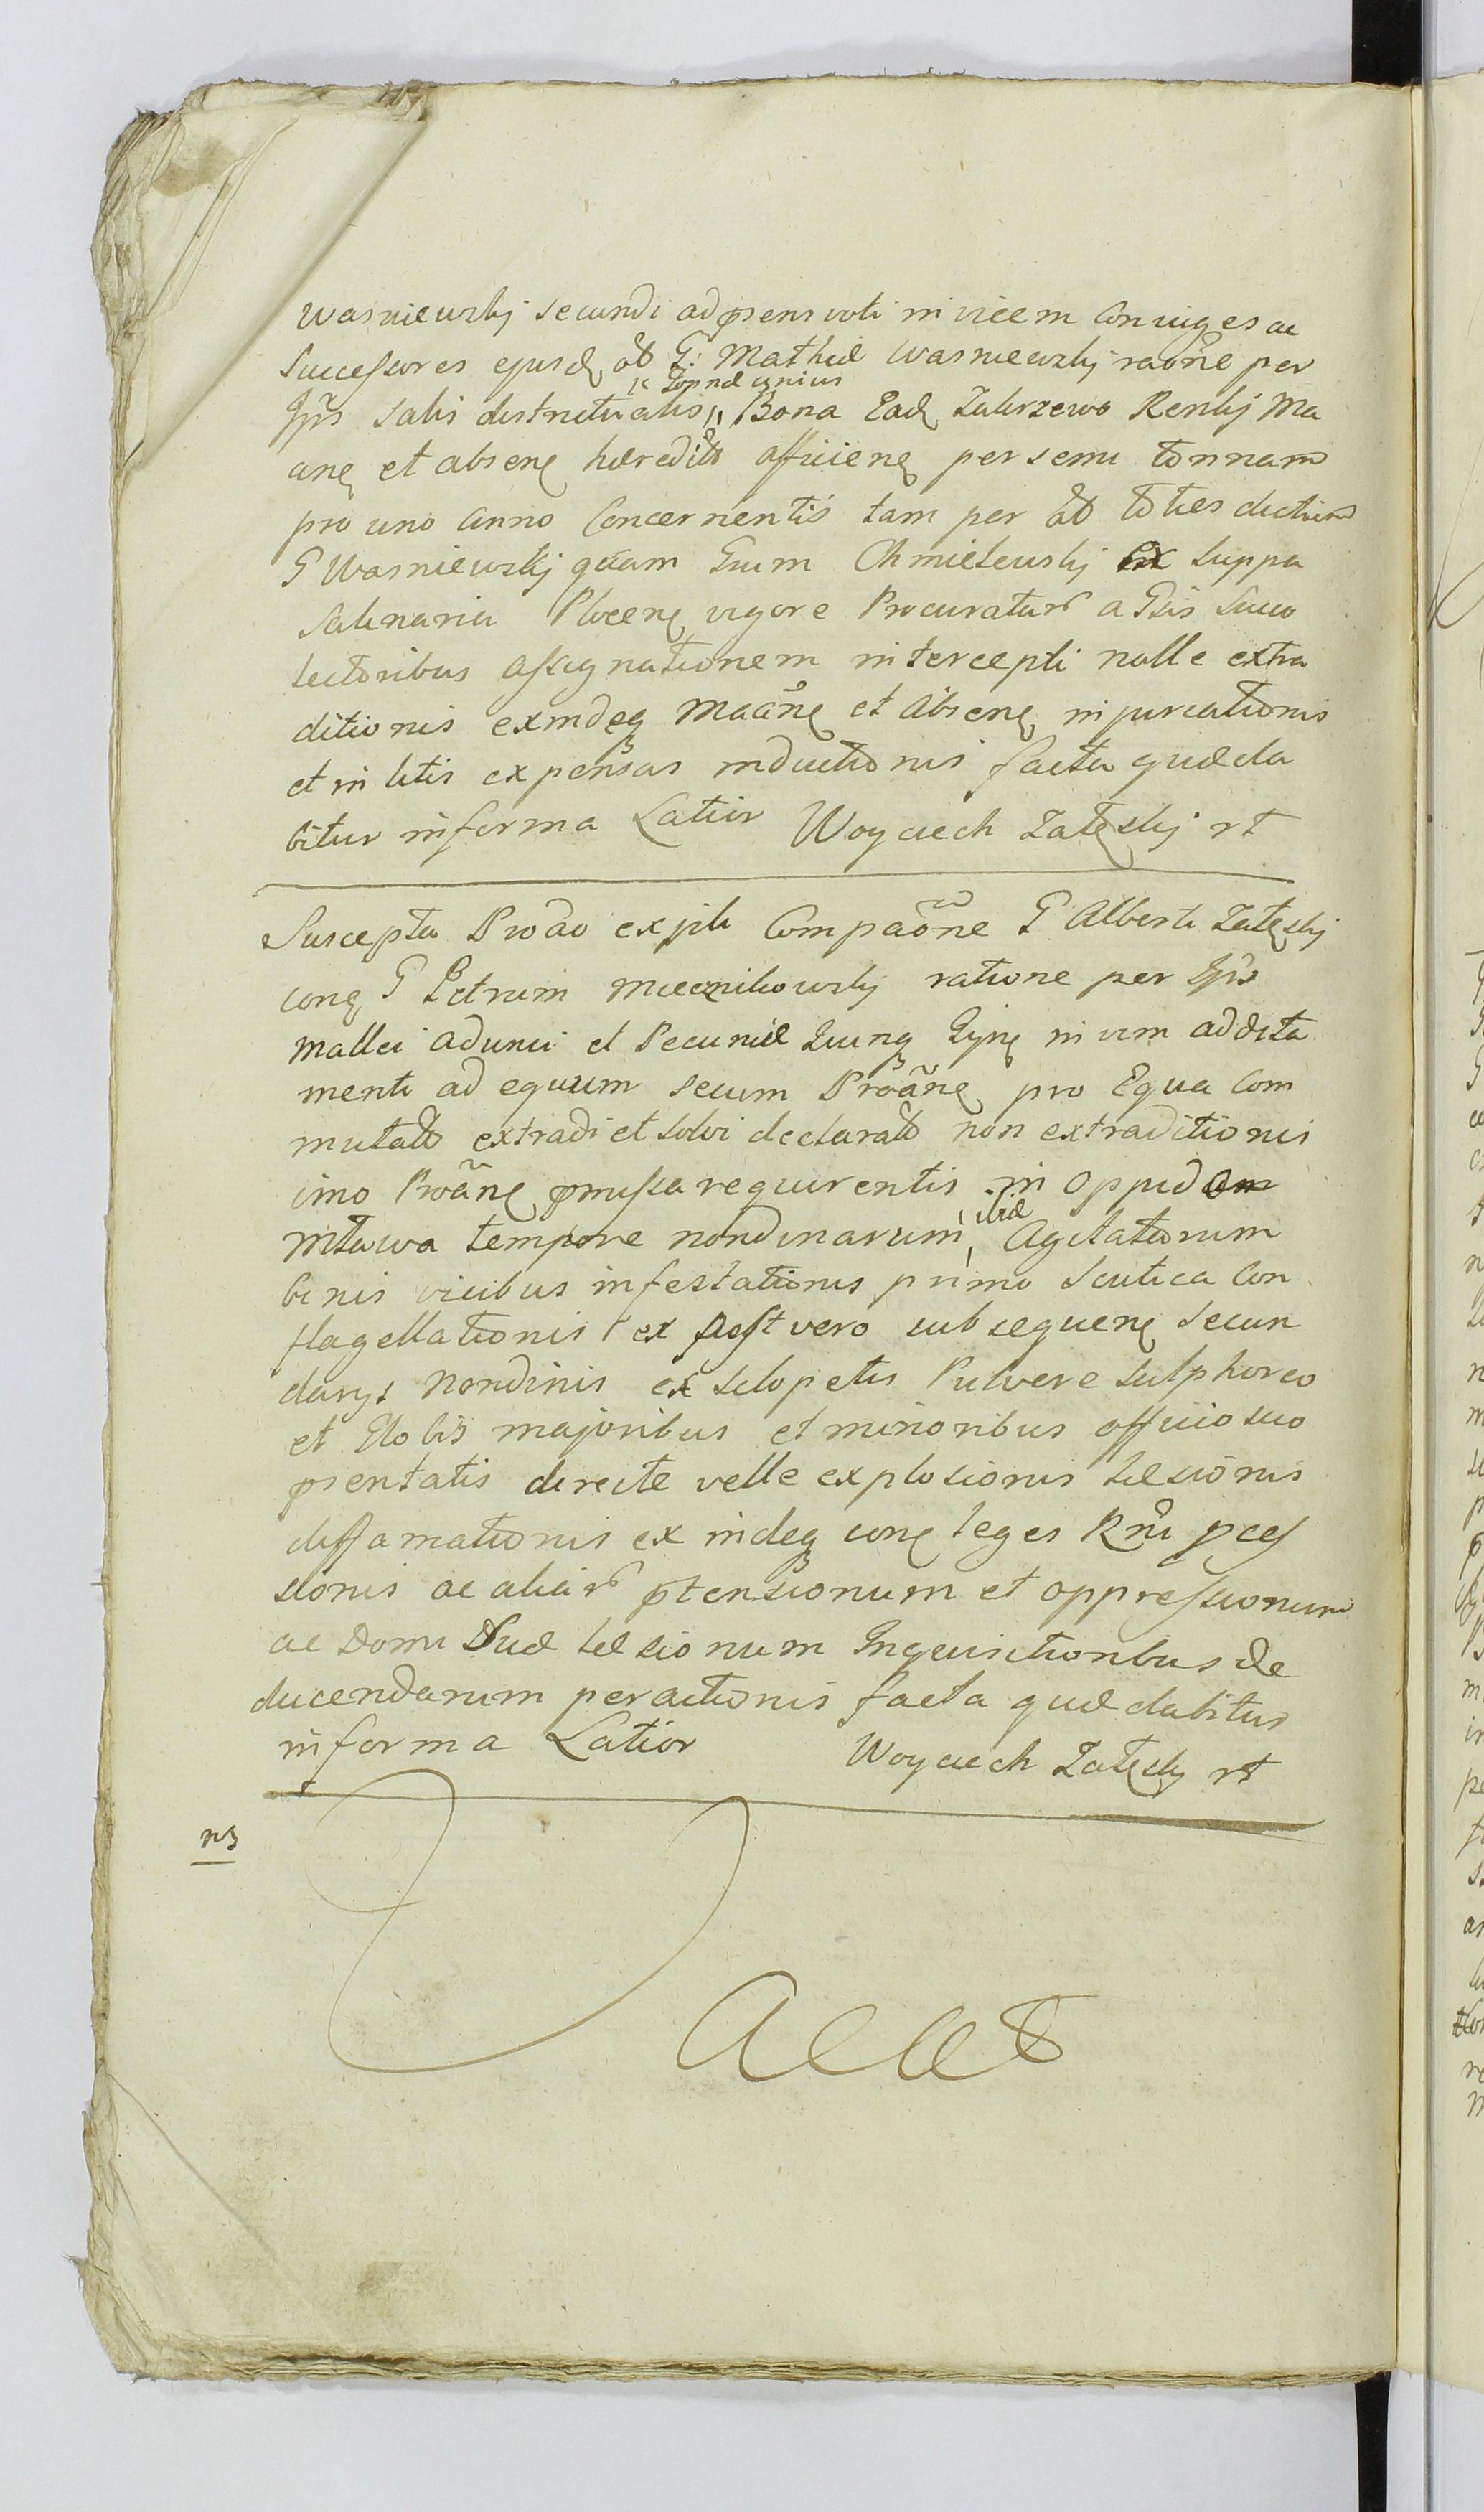 Wasniewskij secundi ad psens voti invicem Conjuges ac
Successores ejusd ab G. Mathiæ Wasniewskij raõne per
Ipõs salis districtualis, Bona Ead Zakrzewo Renkij Ma
Tonnæ unius
anę et absenę hæredit afficienę per semi tonnam
pro uno anno Concernentis tam per toties dictum
G Wasniewskij quam Gnum Chmielewskij ex suppa
Salinaria Plocenę vigore Procuratur a Gsis Succo
lectoribus assignationem intercepti nolle extra
ditionis exindeq Maãnę et Absenę injuriationis
et in litis expensas inductionis facta quæ da
bitur in forma Latior Woyciech Załęskij rt
Suscepta Proão ex jıli Compaõne G Alberti Załęskij
conę G Petrum Miecznikowskij ratione per Ipõ
mallei adunci et Pecuniæ in vim addita
menti ad equum secum Proãnę pro Equa Com
mutato extradi et solvi declarato non extraditionis
imo Proãnę pmissa requirentis in Oppido
Mlawa tempore nondinarum, ibid Agitatarum
binis vicibus infestationis primo Scutica Con
flagellationis ex post vero subsequenę secun
darys Nondinis ex sclopetis Pulvere sulphoreo
et Globis majoribus et minoribus officio suo
psentatis directe velle explosionis læsionis
diffamationis ex indeq conę leges Rni pces
sionis ac aliar ptensionum et oppressionum
ac Domi Suæ læsionum Inquisitionibus de
ducendarum peractionis facta quæ dabitur
in forma Latior Woyciech Załęskij rt